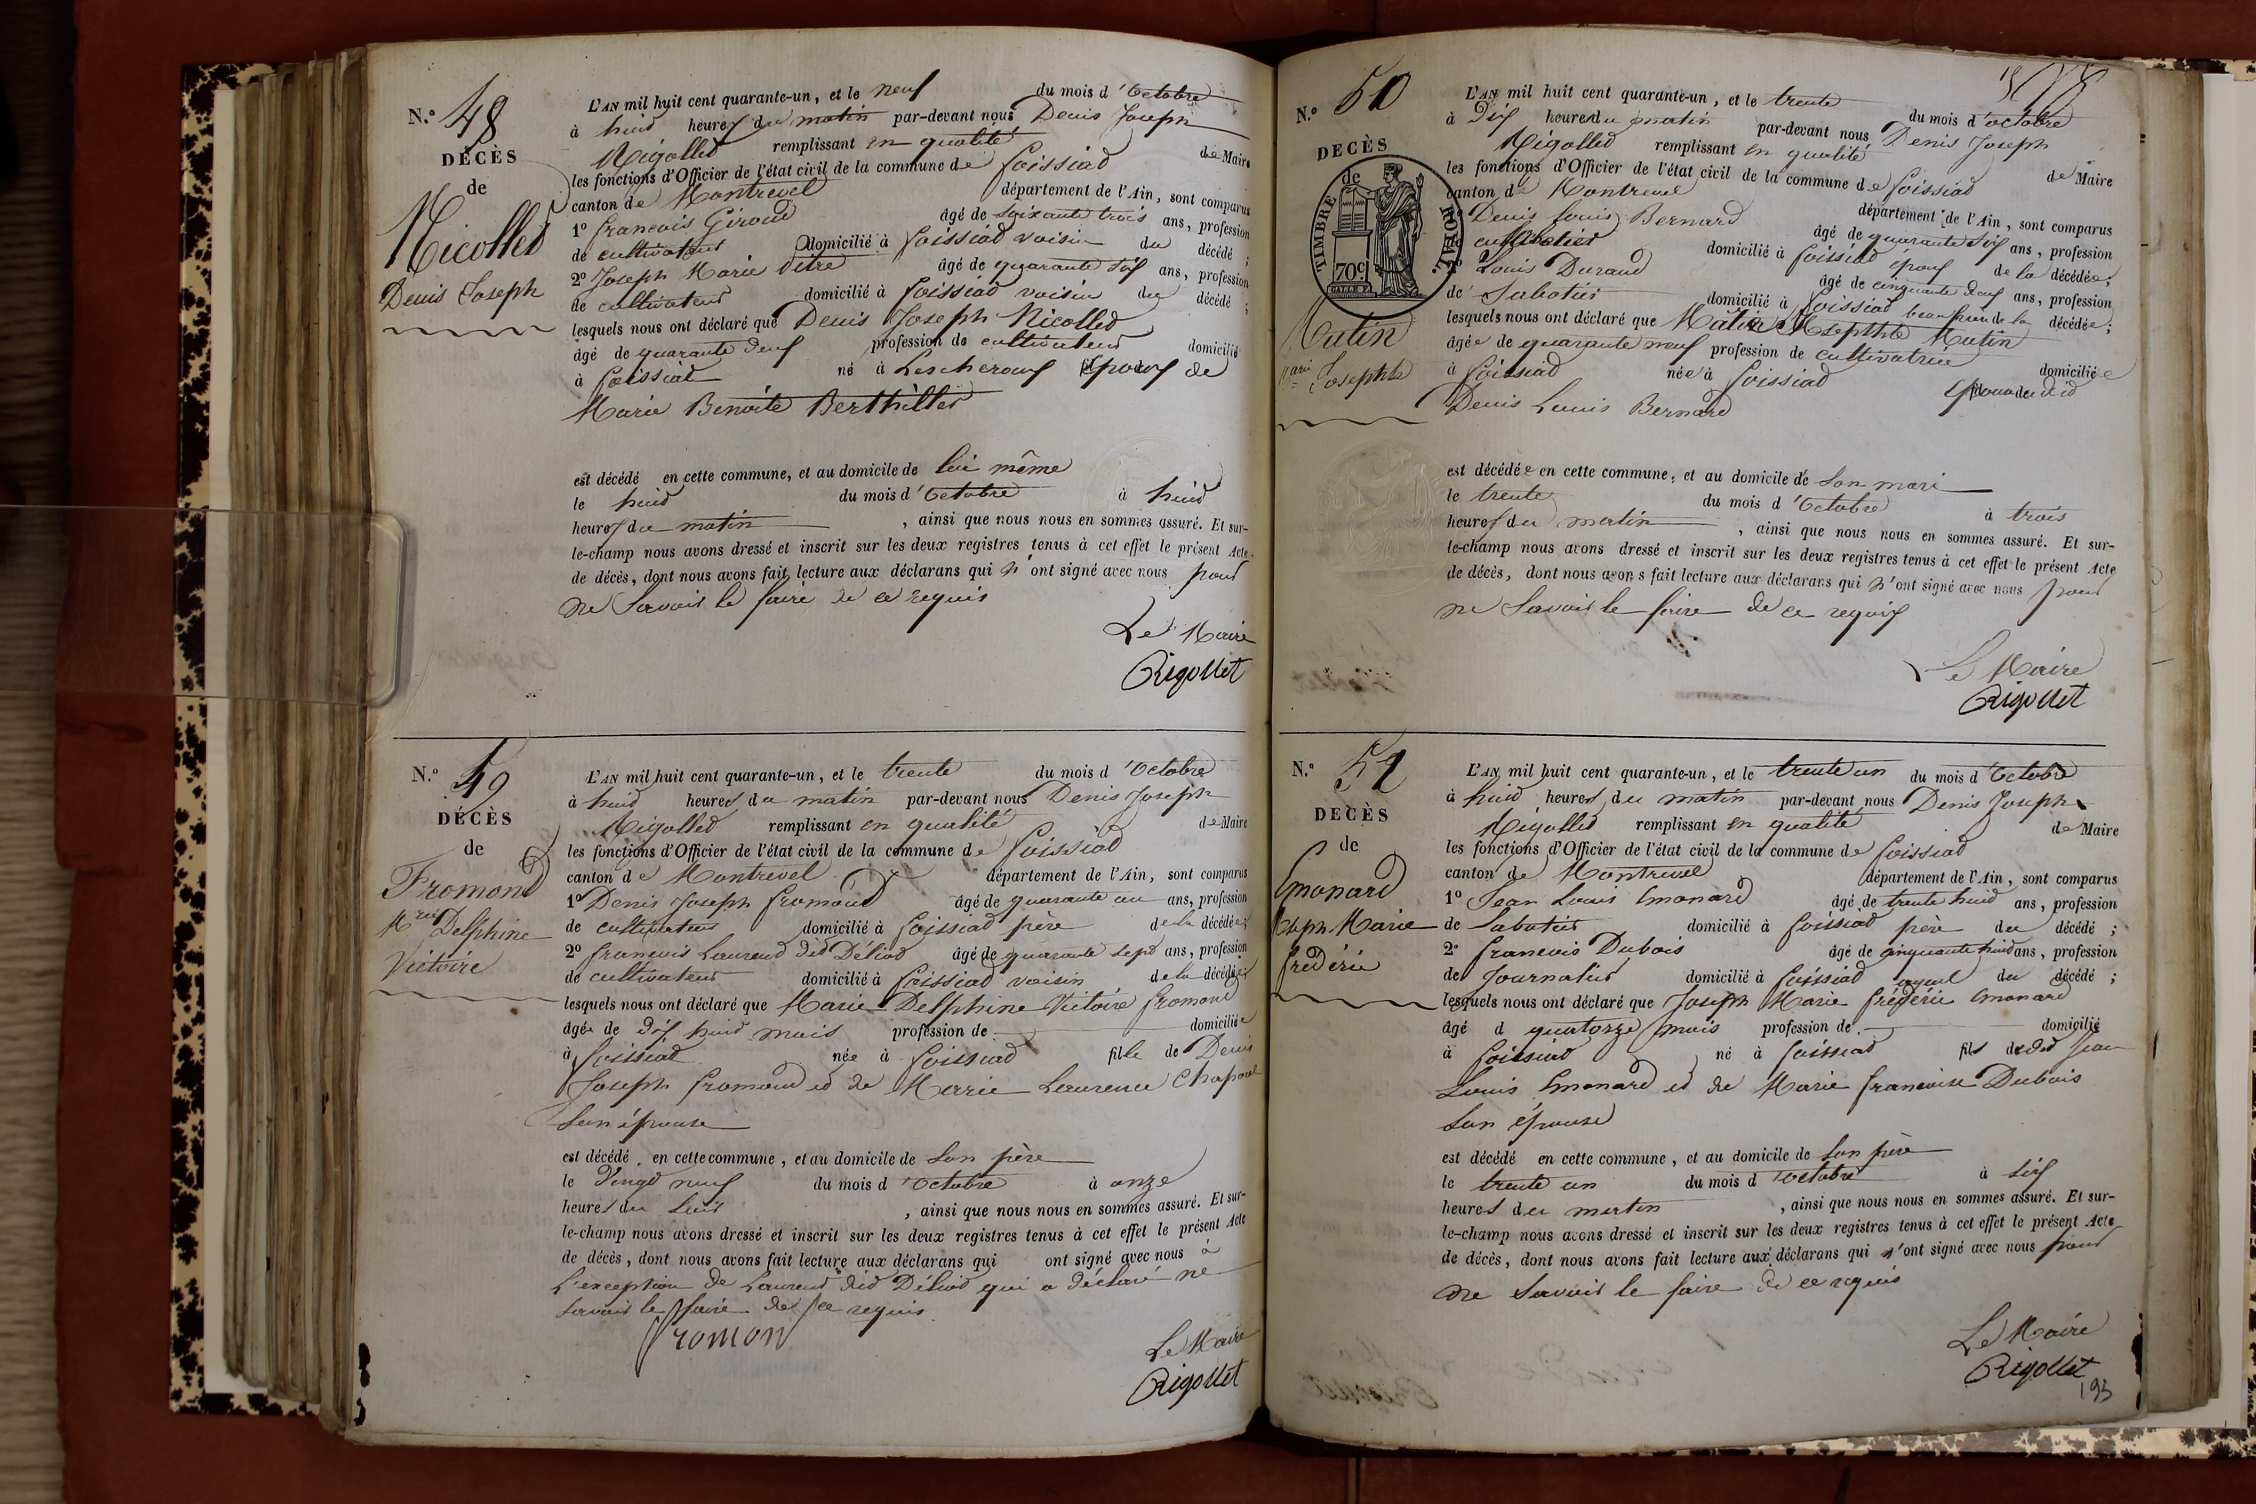 N.° 48
DÉCÈS
de
Nicollet
Denis Joseph
L'AN mil huit cent quarante-un, et le neuf du mois d'Octobre
à huit heures du matin par-devant nous Denis Joseph
Rigollet remplissant en qualité de Maire
les fonctions d'Officier de l'état civil de la commune de Foissiat
canton de Montrevel département de l'Ain, sont comparus
1° francois Giroud âgé de soixante trois ans, profession
de cultivateur domicilié à foissiat voisin du décédé ;
2° Joseph Marie Vitre âgé de quarante six ans, profession
de cultivateur domicilié à foissiat voisin du décédé ;
lesquels nous ont déclaré que Denis Joseph Nicollet
âgé de quarante deux profession de cultivateur domicilié
à foissiat né à Lescheroux époux de
Marie Benoite Berthillier
est décédé en cette commune, et au domicile de lui même
le huit du mois d'Octobre à huit
heures du matin , ainsi que nous nous en sommes assuré. Et sur-
le-champ nous avons dressé et inscrit sur les deux registres tenus à cet effet le présent Acte
de décès, dont nous avons fait lecture aux déclarans qui n'ont signé avec nous pour
ne Savoir le faire de ce requis
Le Maire
Rigollet
N.° 49
DÉCÈS
de
Fromond
Mrie Delphine
Victoire
L'AN mil huit cent quarante-un, et le trente du mois d'Octobre
à huit heures du matin par-devant nous Denis Joseph
Rigollet remplissant en qualité de Maire
les fonctions d'Officier de l'état civil de la commune de foissiat
canton de Montrevel département de l'Ain, sont comparus
1° Denis Joseph fromond âgé de quarante un ans, profession
de cultivateur domicilié à foissiat père de la décédée ;
2° francois Laurent dit Déliot âgé de quarante sept ans, profession
de cultivateur domicilié à foissiat voisin de la décédée ;
lesquels nous ont déclaré que Marie Delphine Victoire fromond
âgée de dix huit mois profession de domiciliée
à foissiat née à foissiat fille de Denis
Joseph fromond et de Marie Laurence
Son épouse
est décédé en cette commune, et au domicile de Son père
le Vingt neuf du mois d'Octobre à onze
heures du Soir , ainsi que nous nous en sommes assuré. Et sur-
le-champ nous avons dressé et inscrit sur les deux registres tenus à cet effet le présent Acte
de décès, dont nous avons fait lecture aux déclarans qui ont signé avec nous à
L'exception de Laurent dit Déliot qui a déclaré ne
Savoir le faire de ce requis
fromon
Le Maire
Rigollet
N.° 50
DÉCÈS
de
TIMBRE ROYAL
70c
Mutin
Marie Josephte
L'AN mil huit cent quarante-un, et le trente du mois d'octobre
à Dix heures du matin par-devant nous Denis Joseph
Rigollet remplissant en qualité de Maire
les fonctions d'Officier de l'état civil de la commune de foissiat
canton de Montrevel département de l'Ain, sont comparus
Denis Louis Bernard âgé de quarante six ans, profession
cultivateur domicilié à foissiat époux de la décédée ;
Louis Durand âgé de cinquante deux ans, profession
de Sabotier domicilié à foissiat beau frère de la décédée ;
lesquels nous ont déclaré que Marie Josephte Mutin
âgée de quarante neuf profession de cultivatrice domiciliée
à foissiat née à foissiat épouse dudit
Denis Louis Bernard
est décédée en cette commune, et au domicile de Son mari
le trente du mois d'Octobre à trois
heures du matin , ainsi que nous nous en sommes assuré. Et sur-
le-champ nous avons dressé et inscrit sur les deux registres tenus à cet effet le présent Acte
de décès, dont nous avons fait lecture aux déclarans qui n'ont signé avec nous pour
ne Savoir le faire de ce requis
Le Maire
Rigollet
N.° 51
DÉCÈS
de
Emonard
Joseph Marie
frédéric
L'AN mil huit cent quarante-un, et le trente un du mois d'Octobre
à huit heures du matin par-devant nous Denis Joseph
Rigollet remplissant en qualité de Maire
les fonctions d'Officier de l'état civil de la commune de foissiat
canton de Montrevel département de l'Ain, sont comparus
1° Jean Louis Emonard âgé de trente huit ans, profession
de Sabotier domicilié à foissiat père du décédé ;
2° francois Dubois âgé de cinquante huit ans, profession
de Journalier domicilié à foissiat ayeul du décédé ;
lesquels nous ont déclaré que Joseph Marie frédéric Emonard
âgé d quatorze mois profession de domicilié
à foissiat né à foissiat fils dudit Jean
Louis Emonard et de Marie francoise Dubois
Son épouse
est décédé en cette commune, et au domicile de Son père
le trente un du mois d'Octobre à Six
heures du matin , ainsi que nous nous en sommes assuré. Et sur-
le-champ nous avons dressé et inscrit sur les deux registres tenus à cet effet le présent Acte
de décès, dont nous avons fait lecture aux déclarans qui n'ont signé avec nous pour
ne Savoir le faire de ce requis
Le Maire
Rigollet
193